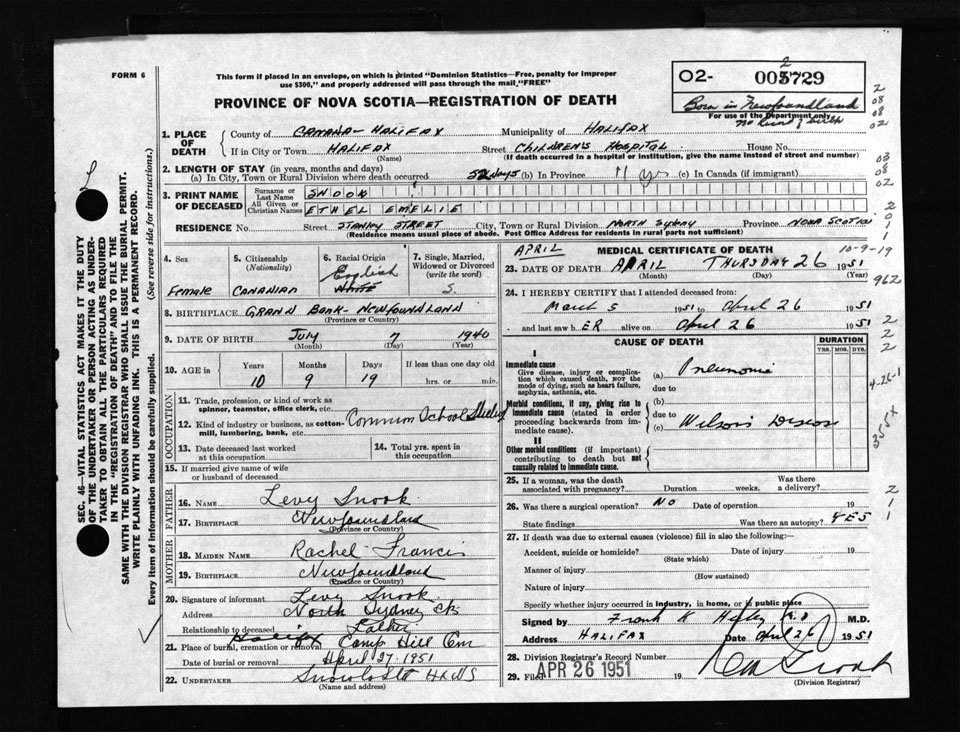 FORM 6
This form if placed in an envelope, on which is printed "Dominion Statistics—Free, penalty for improper
use $300," and properly addressed will pass through the mail "FREE"
O2- 005729
2
Born in Newfoundland
For use of the Department only
PROVINCE OF NOVA SCOTIA—REGISTRATION OF DEATH
1. PLACE OF DEATH
County of CANADA- HALIFAX Municipality of HALIFAX
If in City or Town HALIFAX Street CHILDREN'S HOSPITAL House No.
(Name) (If death occurred in a hospital or institution, give the name instead of street and number)
2. LENGTH OF STAY (in years, months and days)
(a) In City, Town or Rural Division where death occurred 52 days (b) In Province yes (c) In Canada (if immigrant)
3. PRINT NAME OF DECEASED
Surname or Last Name SNOOK
All Given or Christian Names ETHEL EMELIE
RESIDENCE No. Street STANLY STREET City, Town or Rural Division NORTH SYDNY Province NOVA SCOTIA
(Residence means usual place of abode. Post Office Address for residents in rural parts not sufficient)
4. Sex
Female
5. Citizenship
(Nationality)
CANADIAN
6. Racial Origin
English
White
7. Single, Married,
Widowed or Divorced
(write the word)
S
8. BIRTHPLACE GRAND BANK- NEWFOUNDLAND
(Province or Country)
9. DATE OF BIRTH July 7 1940
(Month) (Day) (Year)
10. AGE in Years Months Days If less than one day old
10 9 19 hrs. or min.
OCCUPATION
11. Trade, profession, or kind of work as
spinner, teamster, office clerk, etc.
12. Kind of industry or business, as cotton-
mill, lumbering, bank, etc.
Common School
13. Date deceased last worked
at this occupation
14. Total yrs. spent in
this occupation
15. If married give name of wife
or husband of deceased
FATHER
16. NAME Levy Snook
17. BIRTHPLACE Newfoundland
(Province or Country)
MOTHER
18. MAIDEN NAME Rachel Francis
19. BIRTHPLACE Newfoundland
(Province or Country)
20. Signature of informant Levy Snook
Address North Sydney
Relationship to deceased Father
Halifax
21. Place of burial, cremation or removal Camp Hill Cem
Date of burial or removal April 27. 1951
22. UNDERTAKER
(Name and address)
APRIL
MEDICAL CERTIFICATE OF DEATH
10-9-19
23. DATE OF DEATH APRIL THURSDAY 26 1951
(Month) (Day) (Year)
962
24. I HEREBY CERTIFY that I attended deceased from:
March 5 1951 to April 26 1951
and last saw h ER alive on April 26 1951
CAUSE OF DEATH DURATION
YRS. MOS. DYS.
I
Immediate cause
Give disease, injury or complica-
tion which caused death, NOT the
mode of dying, such as heart failure,
asphyxia, asthenia, etc.
(a) Pneumonia
due to
Morbid conditions, if any, giving rise to
immediate cause (stated in order
proceeding backwards from im-
mediate cause).
(b)
due to
(c) Wilson's Disease
II
Other morbid conditions (if important)
contributing to death but not
causally related to immediate cause.
4-26-1
25. If a woman, was the death
associated with pregnancy? Duration weeks. Was there
a delivery?
26. Was there a surgical operation? NO Date of operation 19
State findings Was there an autopsy? YES
27. If death was due to external causes (violence) fill in also the following:—
Accident, suicide or homicide? Date of injury 19
(State which)
Manner of injury
(How sustained)
Nature of injury
Specify whether injury occurred in industry, in home, or in public place
Signed by Frank K M.D.
Address HALIFAX Date April 26 1951
28. Division Registrar's Record Number
29. Filed APR 26 1951 19
(Division Registrar)
SEC. 46—VITAL STATISTICS ACT MAKES IT THE DUTY
OF THE UNDERTAKER OR PERSON ACTING AS UNDER-
TAKER TO OBTAIN ALL THE PARTICULARS REQUIRED
IN THE "REGISTRATION OF DEATH" AND TO FILE THE
SAME WITH THE DIVISION REGISTRAR WHO SHALL ISSUE THE BURIAL PERMIT.
WRITE PLAINLY WITH UNFADING INK. THIS IS A PERMANENT RECORD.
Every item of information should be carefully supplied. (See reverse side for instructions.)
2
08
08
02
03
08
02
2
0
1
1
2
2
2
2
1
1